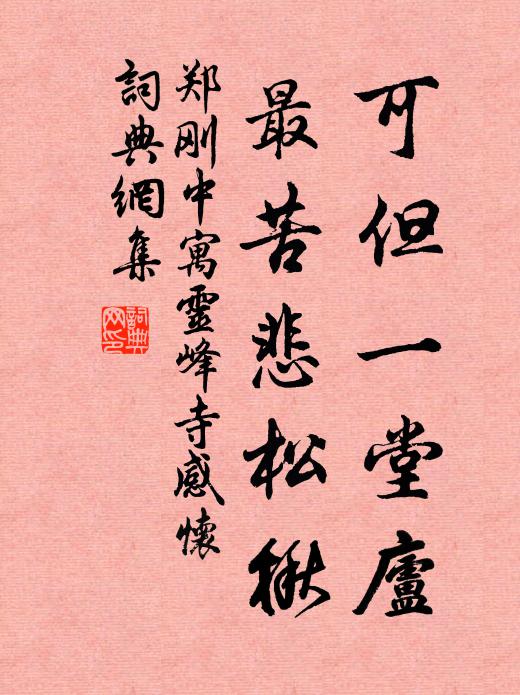 可但一堂廬
最苦悲松楸
郑刚中寓靈峰寺感懷
詞典網集
詞典網印